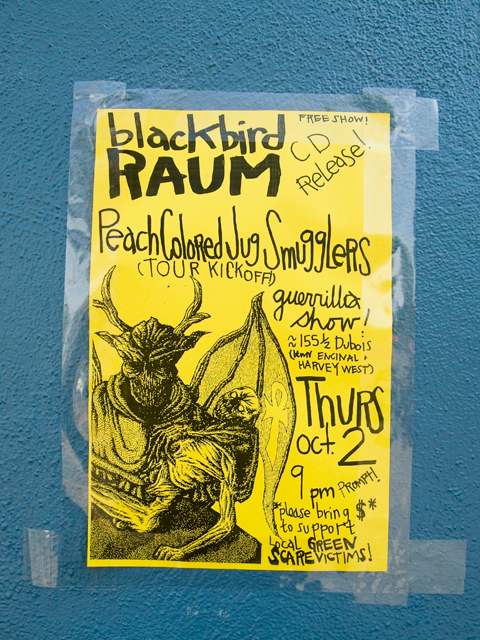 FREE SHOW!
blackbird
RAUM
CD
Release!
Peach Colored Jug Smugglers
(TOUR KICKOFF!)
guerrilla
show!
≈ 155½ Dubois
(btwn ENCINAL +
HARVEY WEST)
THURS
Oct. 2
9 pm PROMPT!
*please bring $*
to support
Local GREEN
SCARE VICTIMS!